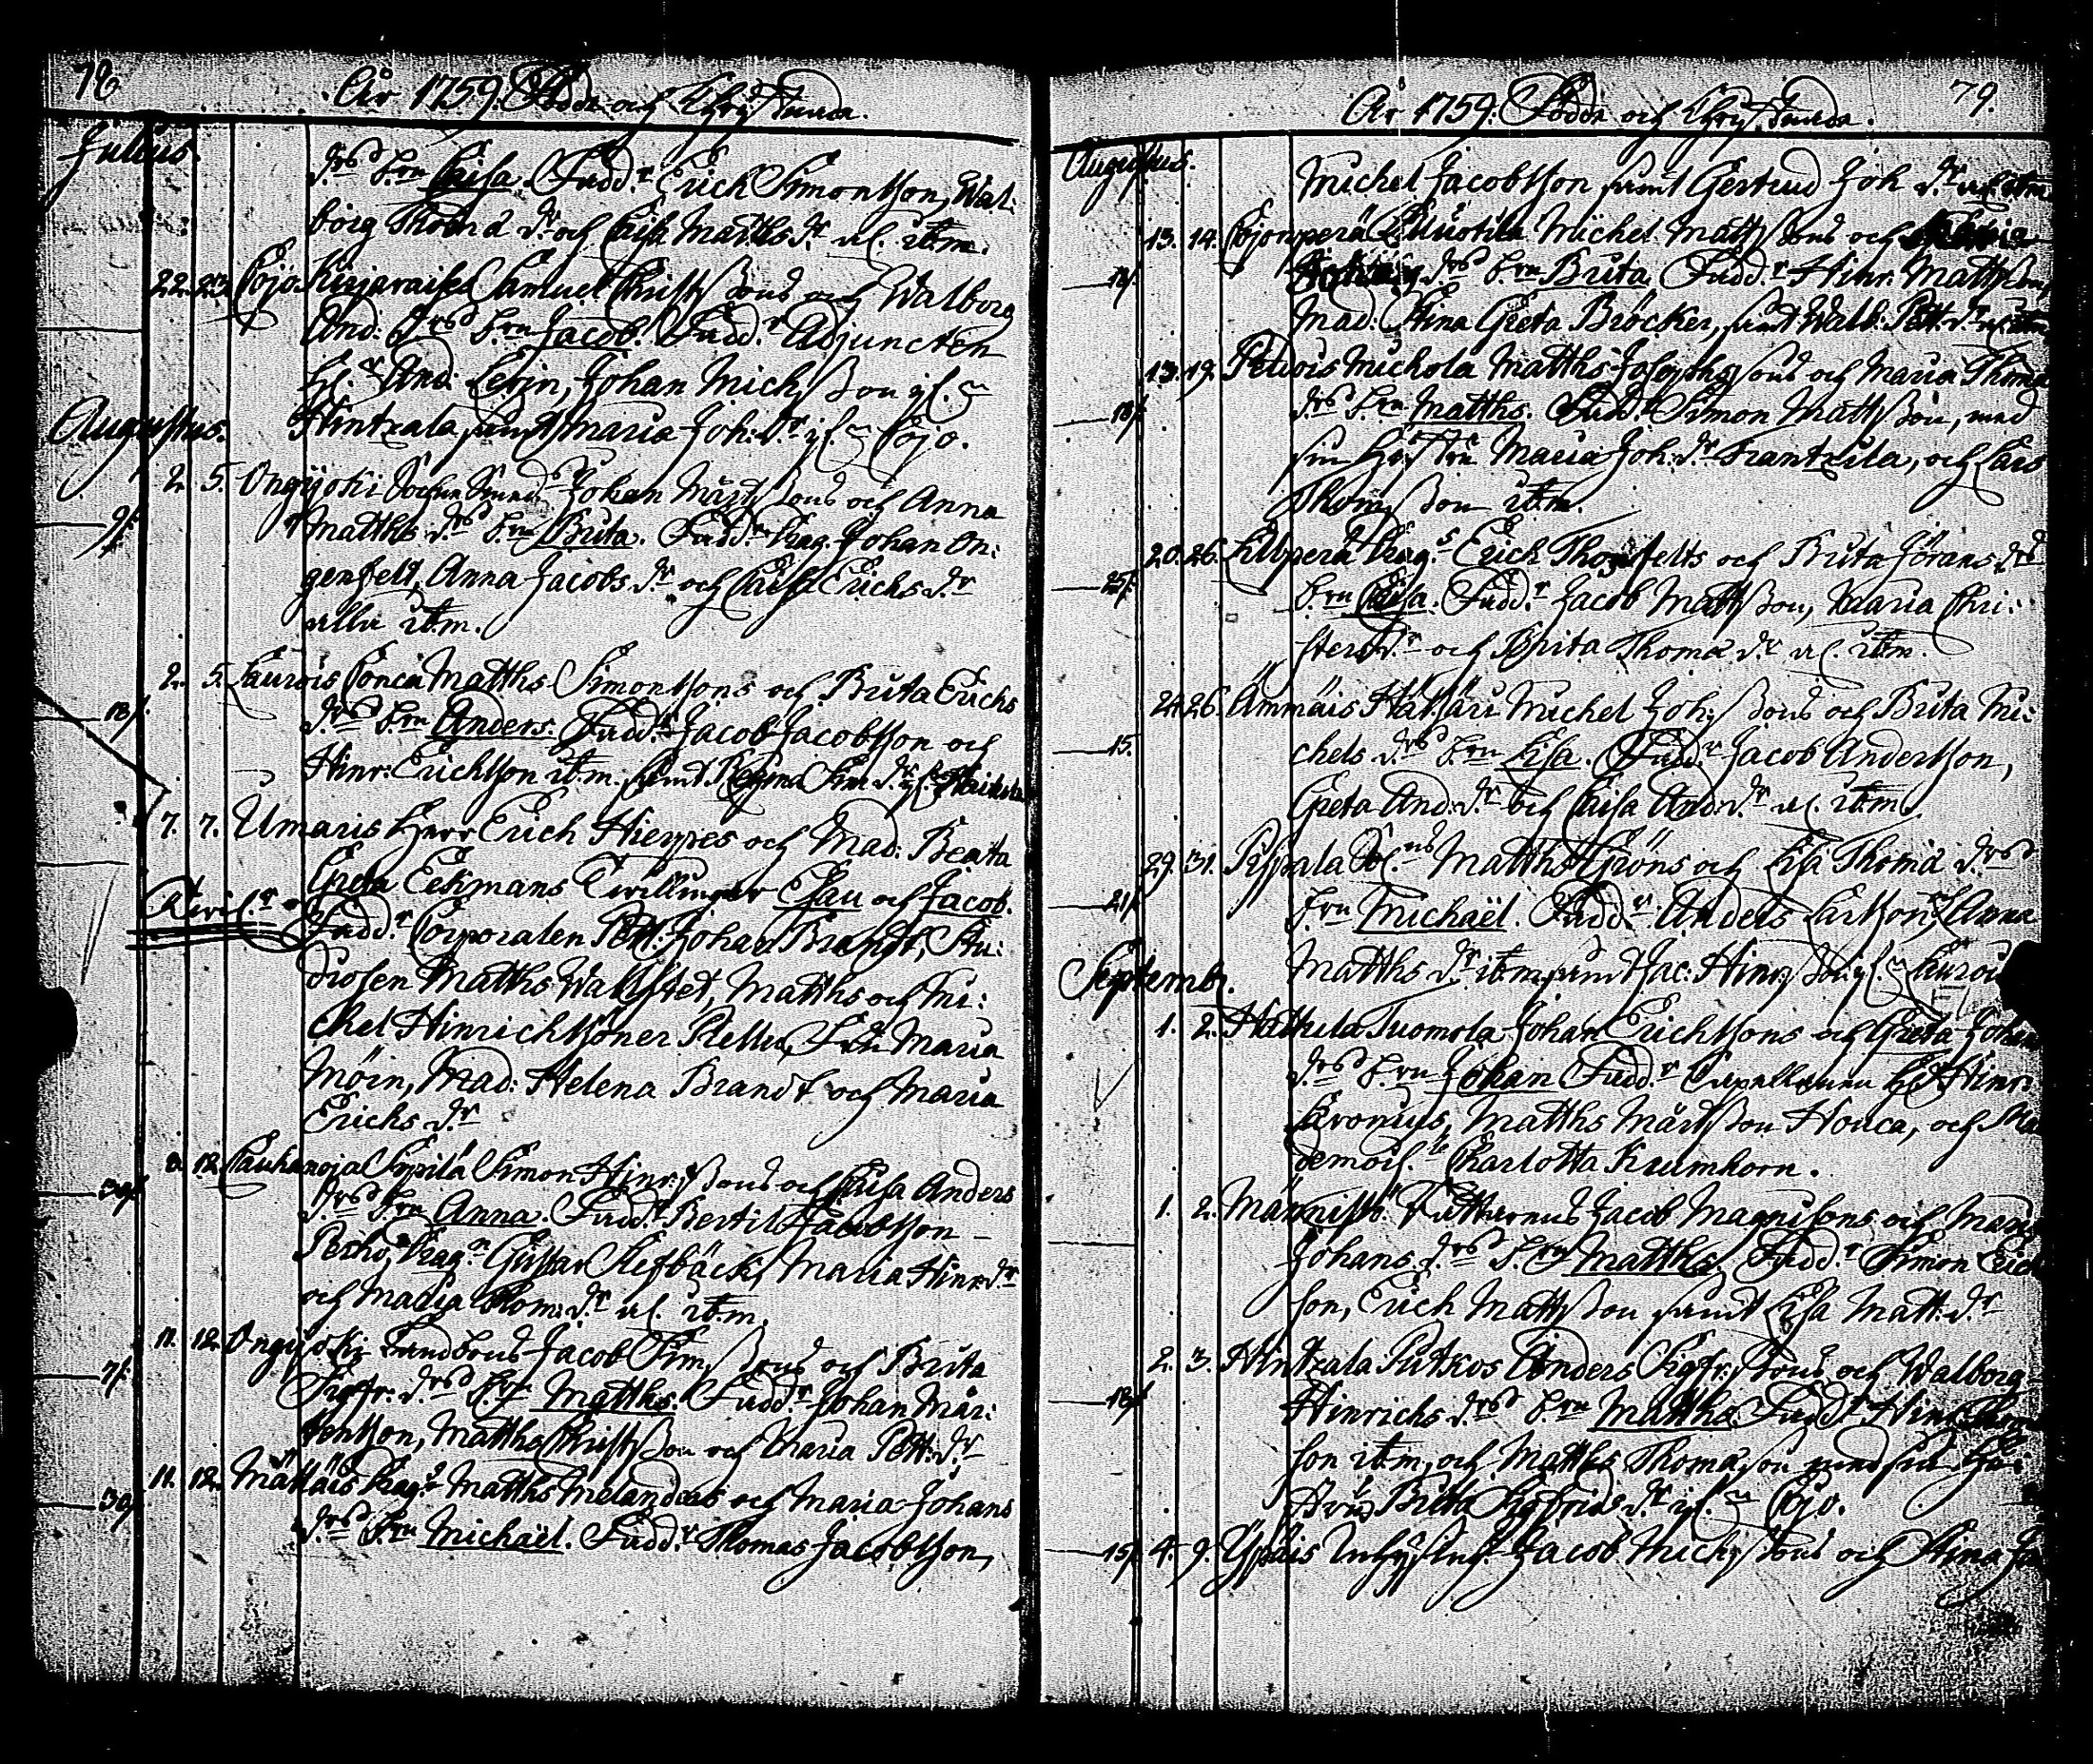 78
År 1759. Födde och Christnade.
Julius.
drs b:rn Caisa. Fadd:r Erich Simonsson, Wal:
borg Thoma dr och Caisa Matths dr al. ibm.
22. 23. Cojo Samuel Christssons och Walborg
And: drs b:rn Jacob. Fadd:r Adjuncten
H:r And: Levin, Johan Michsson if.
Augustus.
Hintzala samt Maria Joh: dr if. Cojo.
2. 5. Ongijoki Johan Mårtssons och Anna
9/.
Matths drs b:rn Brita. Fadd:r Drag. Johan On:
genfelt, Anna Jacobs dr och Caisa Erichs dr
alla ibm.
2. 5. Laurois Matths Simonssons och Brita Erichs
18/.
drs b:rn Anders. Fadd:r Jacob Jacobsson och
Hinr: Erichsson ibm. samt Sim: dr
7. 7. Umaris Herr Erich Hierpes och Mad: Beata
Greta Eekmans Twillingar Esau och Jacob.
Fadd:r Corporalen Pett: Johan Brandt, Stu:
diosen Matths Wallstet, Matths och Mi:
chel Hinrichssöner Maria
Möin, Mad: Helena Brandt och Maria
Erichs dr
8. 12. Cauhanoja Sippilä Simon Hinrssons och Caisa Anders
30/.
drs b:rn Anna. Fadd:r Bertil Jacobsson
Perho, Drag:n Gustav Refbäck, Maria Hinr dr
och Maria Thom: dr al. ibm.
11. 12. Ongijoki Jacob Simssons och Brita
7/.
Sigfr: drs b:rn Matths. Fadd:r Johan Mår:
tensson, Matths Christsson och Maria Pett: dr
11. 12. Mattais Drag:s Matths Melanders och Maria Johans
30/.
drs b:rn Michaël. Fadd:r Thomas Jacobsson,
79.
År 1759. Födde och Christnade.
Augustus.
Michel Jacobsson samt Gertrud Joh dr al. ibm
13. 14. Cojonperä Michel Mattssons och
18/.
drs b:rn Brita. Fadd:r Hinr: Mattsson,
Mad: Stina Greta Bröcker, samt Walb: Pett: dr al. ibm
13. 19. Pelwois Michola Matths Josephssons och Maria Thoma
18/.
drs b:rn Matths. Fadd:r Simon Mattsson, med
sin Hustru Maria Joh: dr Frantzila, och Lars
Thomsson ibm.
20. 26. Killperä Drag:s Erich Thorfelts och Brita Jörans drs
25/.
b:rn Caisa. Fadd:r Jacob Mattsson, Maria Chri:
sters dr och Brita Thoma dr al. ibm.
24. 26. Ämmäis Michel Johssons och Brita Mi:
15.
chels drs b:rn Lisa. Fadd:r Jacob Andersson,
Greta And: dr och Caisa And: dr al. ibm.
29. 31. Pippala Matths Hjröns och Lisa Thoma drs
21/.
b:rn Michaël. Fadd:r Anders Larsson, Anna
Septembr.
Matths dr ibm samt Jac: Hinrsson if. Laurois
1. 2. Hattula Tuomola Johan Erichssons och Greta Johan
drs b:rn Johan. Fadd:r Capellanen H:r Hinr:
Kronius, Matths Mårtsson Houca, och Ma
demois.le Charlotta Krumhorn.
1. 2. Männistö Jacob Magnssons och Maria
Johans drs b:rn Matths. Fadd:r Simon Erich
son, Erich Mattsson samt Lisa Matt: dr
2. 3. Hintzala Putkos Anders Sigfr:ssons och Walborg
18/.
Hinrichs drs b:rn Matths. Fadd:r Hinr:
son ibm, och Matths Thomason med sin Hu:
stru Brita Sigfrids dr if. Cojo.
15/. 4. 9. Ypäis Jacob Michssons och Stina